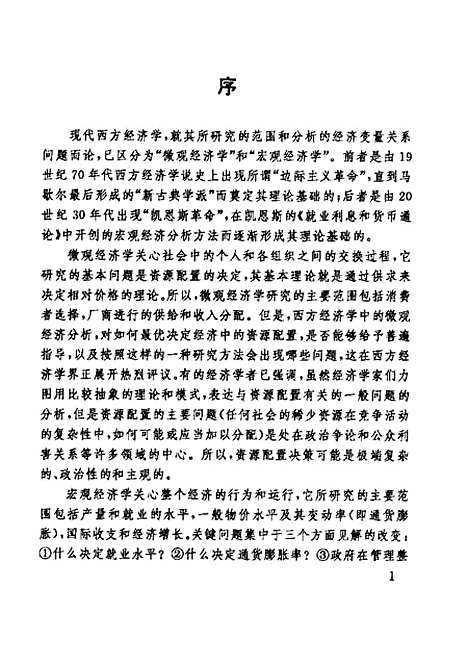 序
现代西方经济学，就其所研究的范围和分析的经济变量关系
问题而论，已区分为“微观经济学”和“宏观经济学”。前者是由 19
世纪 70 年代西方经济学说史上出现所谓“边际主义革命”，直到马
歇尔最后形成的“新古典学派”而奠定其理论基础的；后者是由 20
世纪 30 年代出现“凯恩斯革命”，在凯恩斯的《就业利息和货币通
论》中开创的宏观经济分析方法而逐渐形成其理论基础的。
微观经济学关心社会中的个人和各组织之间的交换过程，它
研究的基本问题是资源配置的决定，其基本理论就是通过供求来
决定相对价格的理论。所以，微观经济学研究的主要范围包括消费
者选择，厂商进行的供给和收入分配。但是，西方经济学中的微观
经济分析，对如何最优决定经济中的资源配置，是否能够给予普遍
指导，以及按照这样的一种研究方法会出现哪些问题，这在西方经
济学界正展开热烈评议。有的经济学者已强调，虽然经济学家们力
图用比较抽象的理论和模式，表达与资源配置有关的一般问题的
分析，但是资源配置的主要问题（任何社会的稀少资源在竞争活动
的复杂性中，如何可能或应当加以分配）是处在政治争论和公众利
害关系等许多领域的中心。所以，资源配置决策可能是极端复杂
的、政治性的和主观的。
宏观经济学关心整个经济的行为和运行，它所研究的主要范
围包括产量和就业的水平，一般物价水平及其变动率（即通货膨
胀），国际收支和经济增长。关键问题集中于三个方面见解的改变：
①什么决定就业水平？②什么决定通货膨胀率？③政府在管理整
1